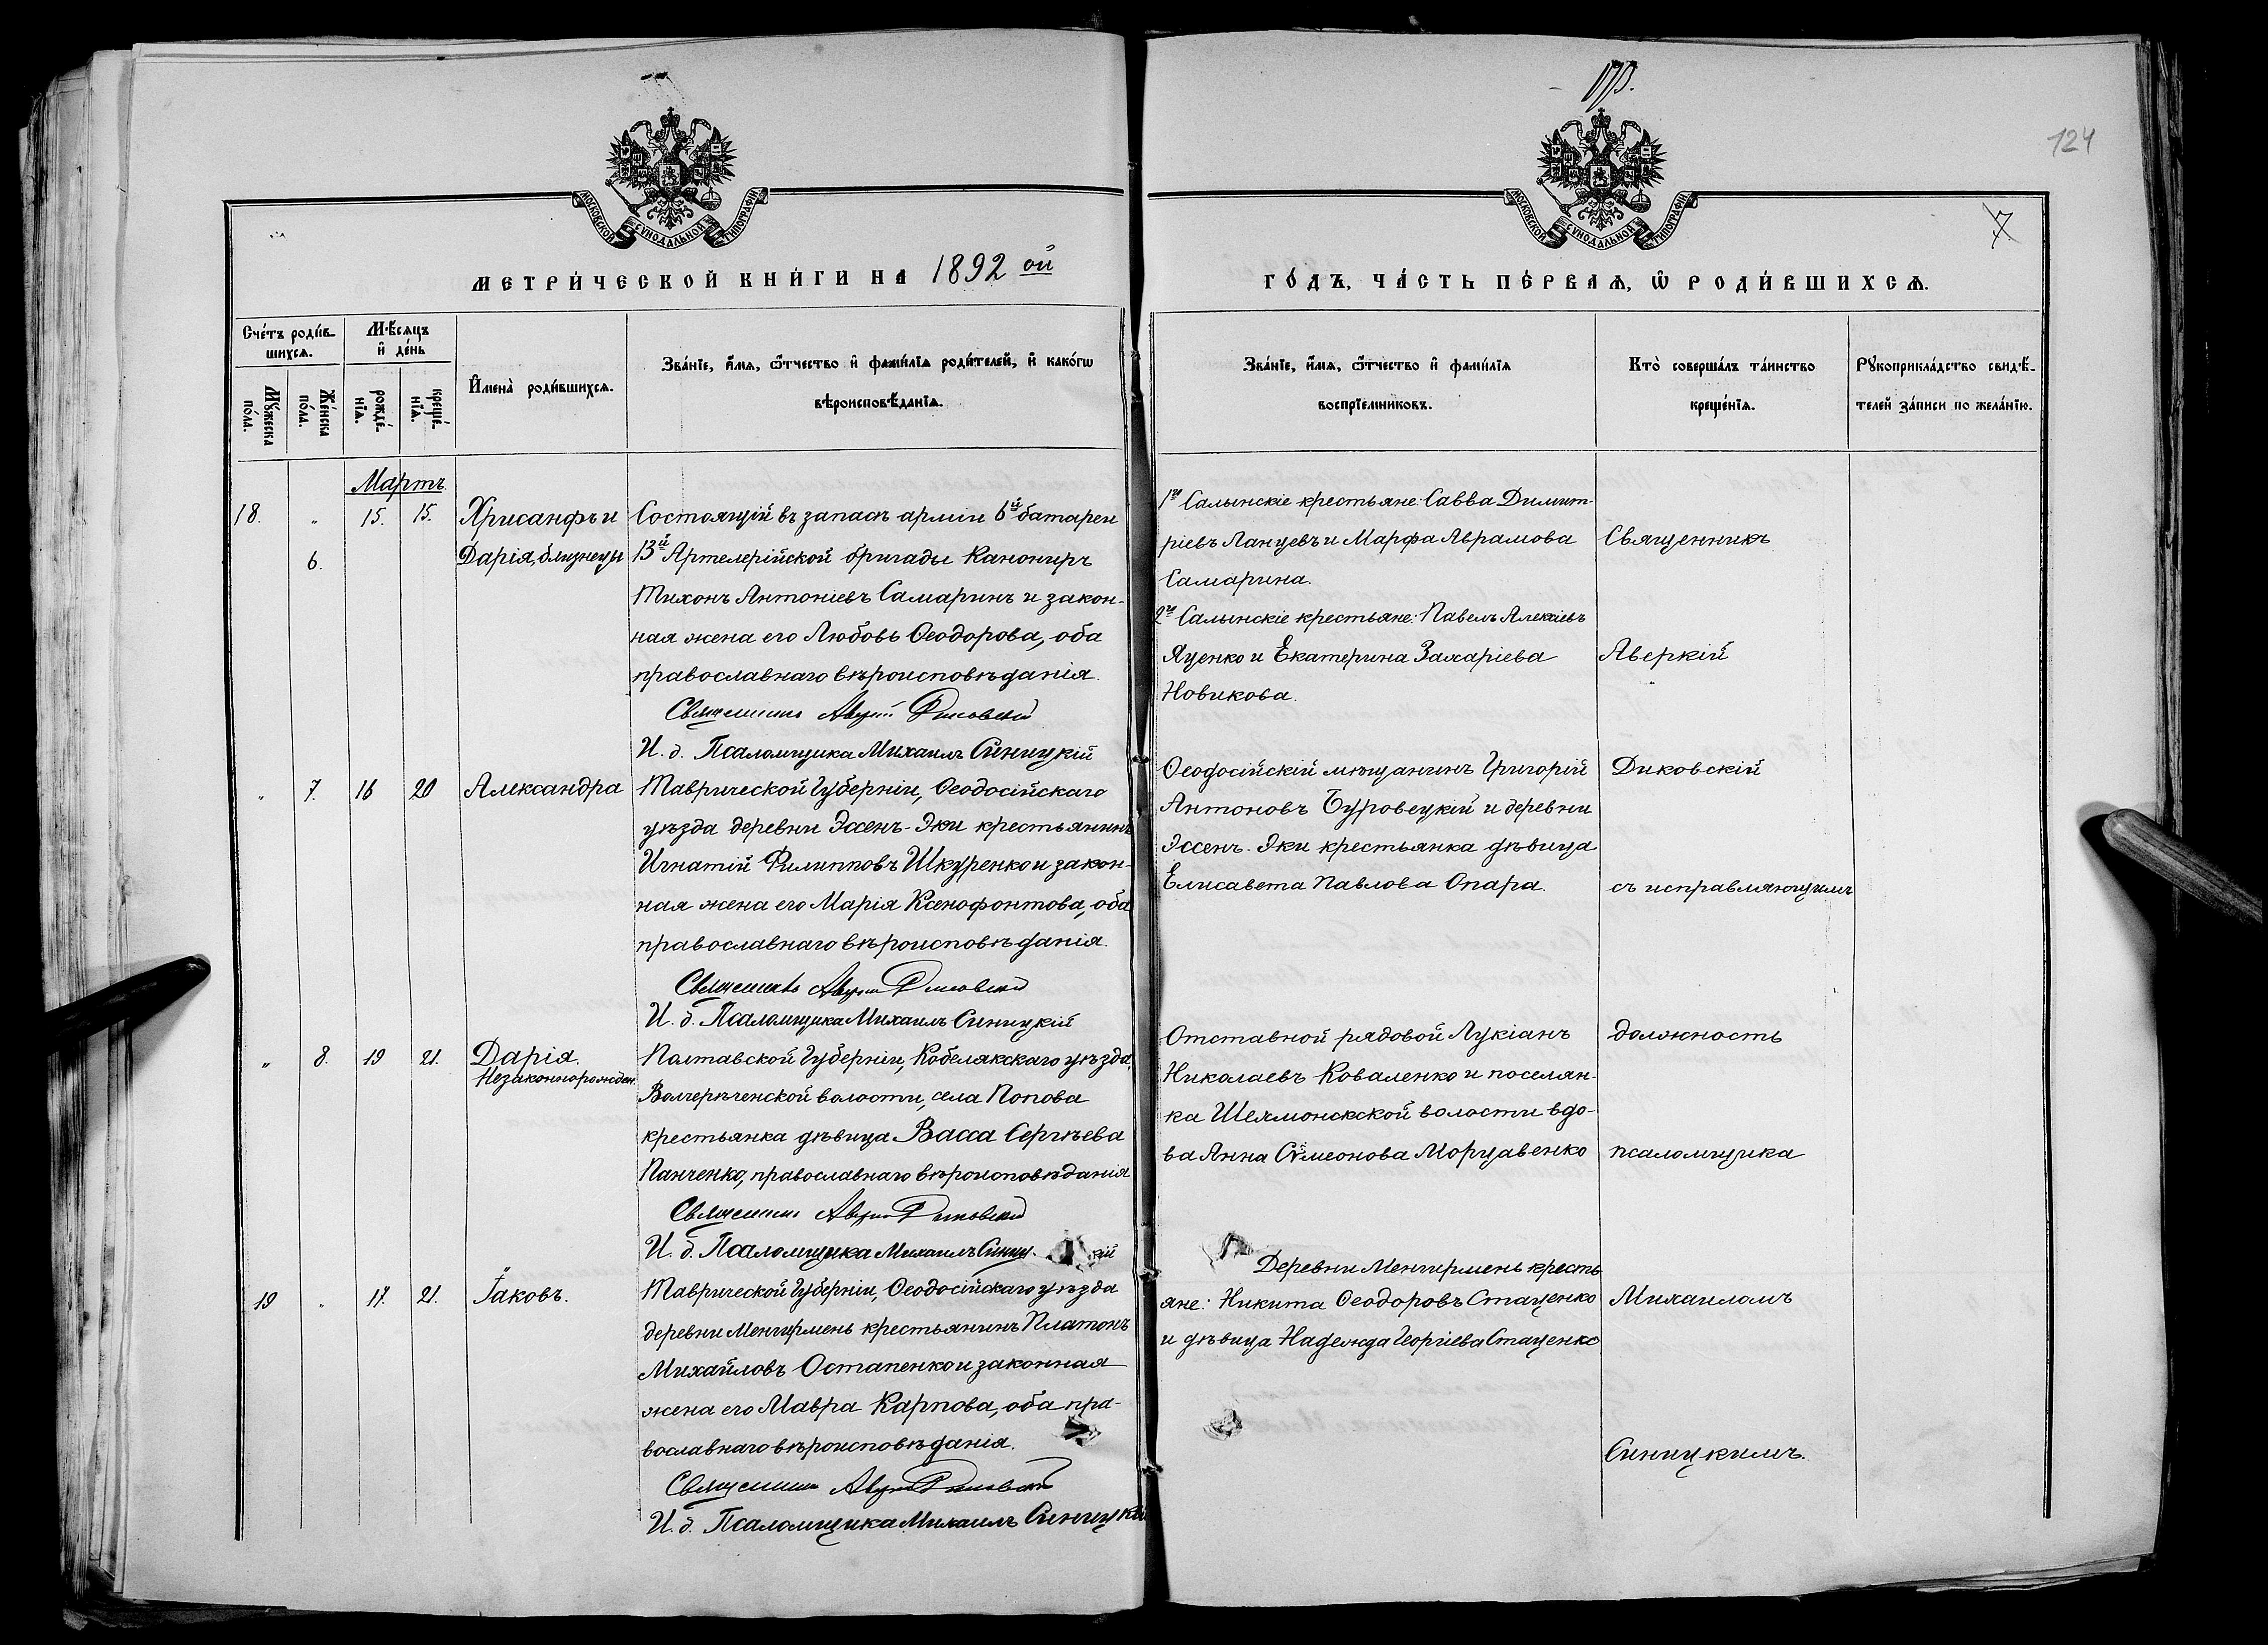 124
7
МОСКОВСКОЙ СУНОДАЛЬНОЙ ТИПОГРАФІИ
МОСКОВСКОЙ СУНОДАЛЬНОЙ ТИПОГРАФІИ
МЕТРИ́ЧЕСКОЙ КНИ́ГИ НА 1892 ой
ГО́ДЪ, ЧА́СТЬ ПЕ́РВАѦ, Ѿ РОДИ́ВШИХСѦ.
Сче́тъ роди́в-
шихсѧ.
Мꙋ́жеска по́ла.
Же́нска по́ла.
Мѣ́сѧцъ
и҆ де́нь
рожде́-
нїѧ.
креще́-
нїѧ.
И҆мена̀ роди́вшихсѧ.
Зва́нїе, и҆́мѧ, ѻ҆́тчество и҆ фами́лїѧ роди́телей, и҆ како́гѡ
вѣроисповѣ́данїѧ.
Зва́нїе, и҆́мѧ, ѻ҆́тчество и҆ фами́лїѧ
воспрїе́мниковъ.
Кто̀ соверша́лъ та́инство
креще́нїѧ.
Рꙋкоприкла́дство свидѣ́-
телей за́писи по жела́нїю.
Мартъ.
18. " 15. 15. Хрисанфъ и
6. Дарія, близнецы
Состоящій въ запасѣ арміи 6й батареи
13й Артелерійской бригады Канониръ
Тихонъ Антоніевъ Самаринъ и закон-
ная жена его Любовь Ѳеодорова, оба
православнаго вѣроисповѣданія.
Священникъ Аверкій Диковскій
И. д. Псаломщика Михаилъ Синицкій
1го Салынскіе крестьяне: Савва Димит-
ріевъ Ланцевъ и Марфа Аврамова
Самарина.
2го Салынскіе крестьяне: Павелъ Алексіевъ
Яценко и Екатерина Захаріева
Новикова.
Священникъ
Аверкій
" 7. 16 20 Александра
Таврической Губерніи, Ѳеодосійскаго
уѣзда деревни Эссенъ-Эки крестьянинъ
Игнатій Филипповъ Шкуренко и закон-
ная жена его Марія Ксенофонтова, оба
православнаго вѣроисповѣданія.
Священникъ Аверкій Диковскій
И. д. Псаломщика Михаилъ Синицкій
Ѳеодосійскій мѣщанинъ Григорій
Антоновъ Буровецкій и деревни
Эссенъ-Эки крестьянка дѣвица
Елисавета Павлова Опара.
Диковскій
съ исправляющимъ
" 8. 19 21. Дарія.
Незаконнорожден.
Полтавской Губерніи, Кобелякскаго уѣзда,
Волчерѣченской волости, села Попова
крестьянка дѣвица Васса Сергѣева
Панченко, православнаго вѣроисповѣданія
Священникъ Аверкій Диковскій
И. д. Псаломщика Михаилъ Синицкій
Отставной рядовой Лукіанъ
Николаевъ Коваленко и поселян-
ка волости вдо-
ва Анна СѵмеоноваМорцавенко
должность
псаломщика
19 " 17. 21. Іаковъ.
Таврической Губерніи, Ѳеодосійскаго уѣзда
деревни Менгирмень крестьянинъ Платонъ
Михайловъ Остапенко и законная
жена его Мавра Карпова, оба пра-
вославнаго вѣроисповѣданія.
Священникъ Аверкій Диковскій
И. д. Псаломщика Михаилъ Синицкій
Деревни Менгирмень кресть
яне: Никита Ѳеодоровъ Стаценко
и дѣвица Надежда Георгіева Стаценко
Михаиломъ
Синицкимъ.